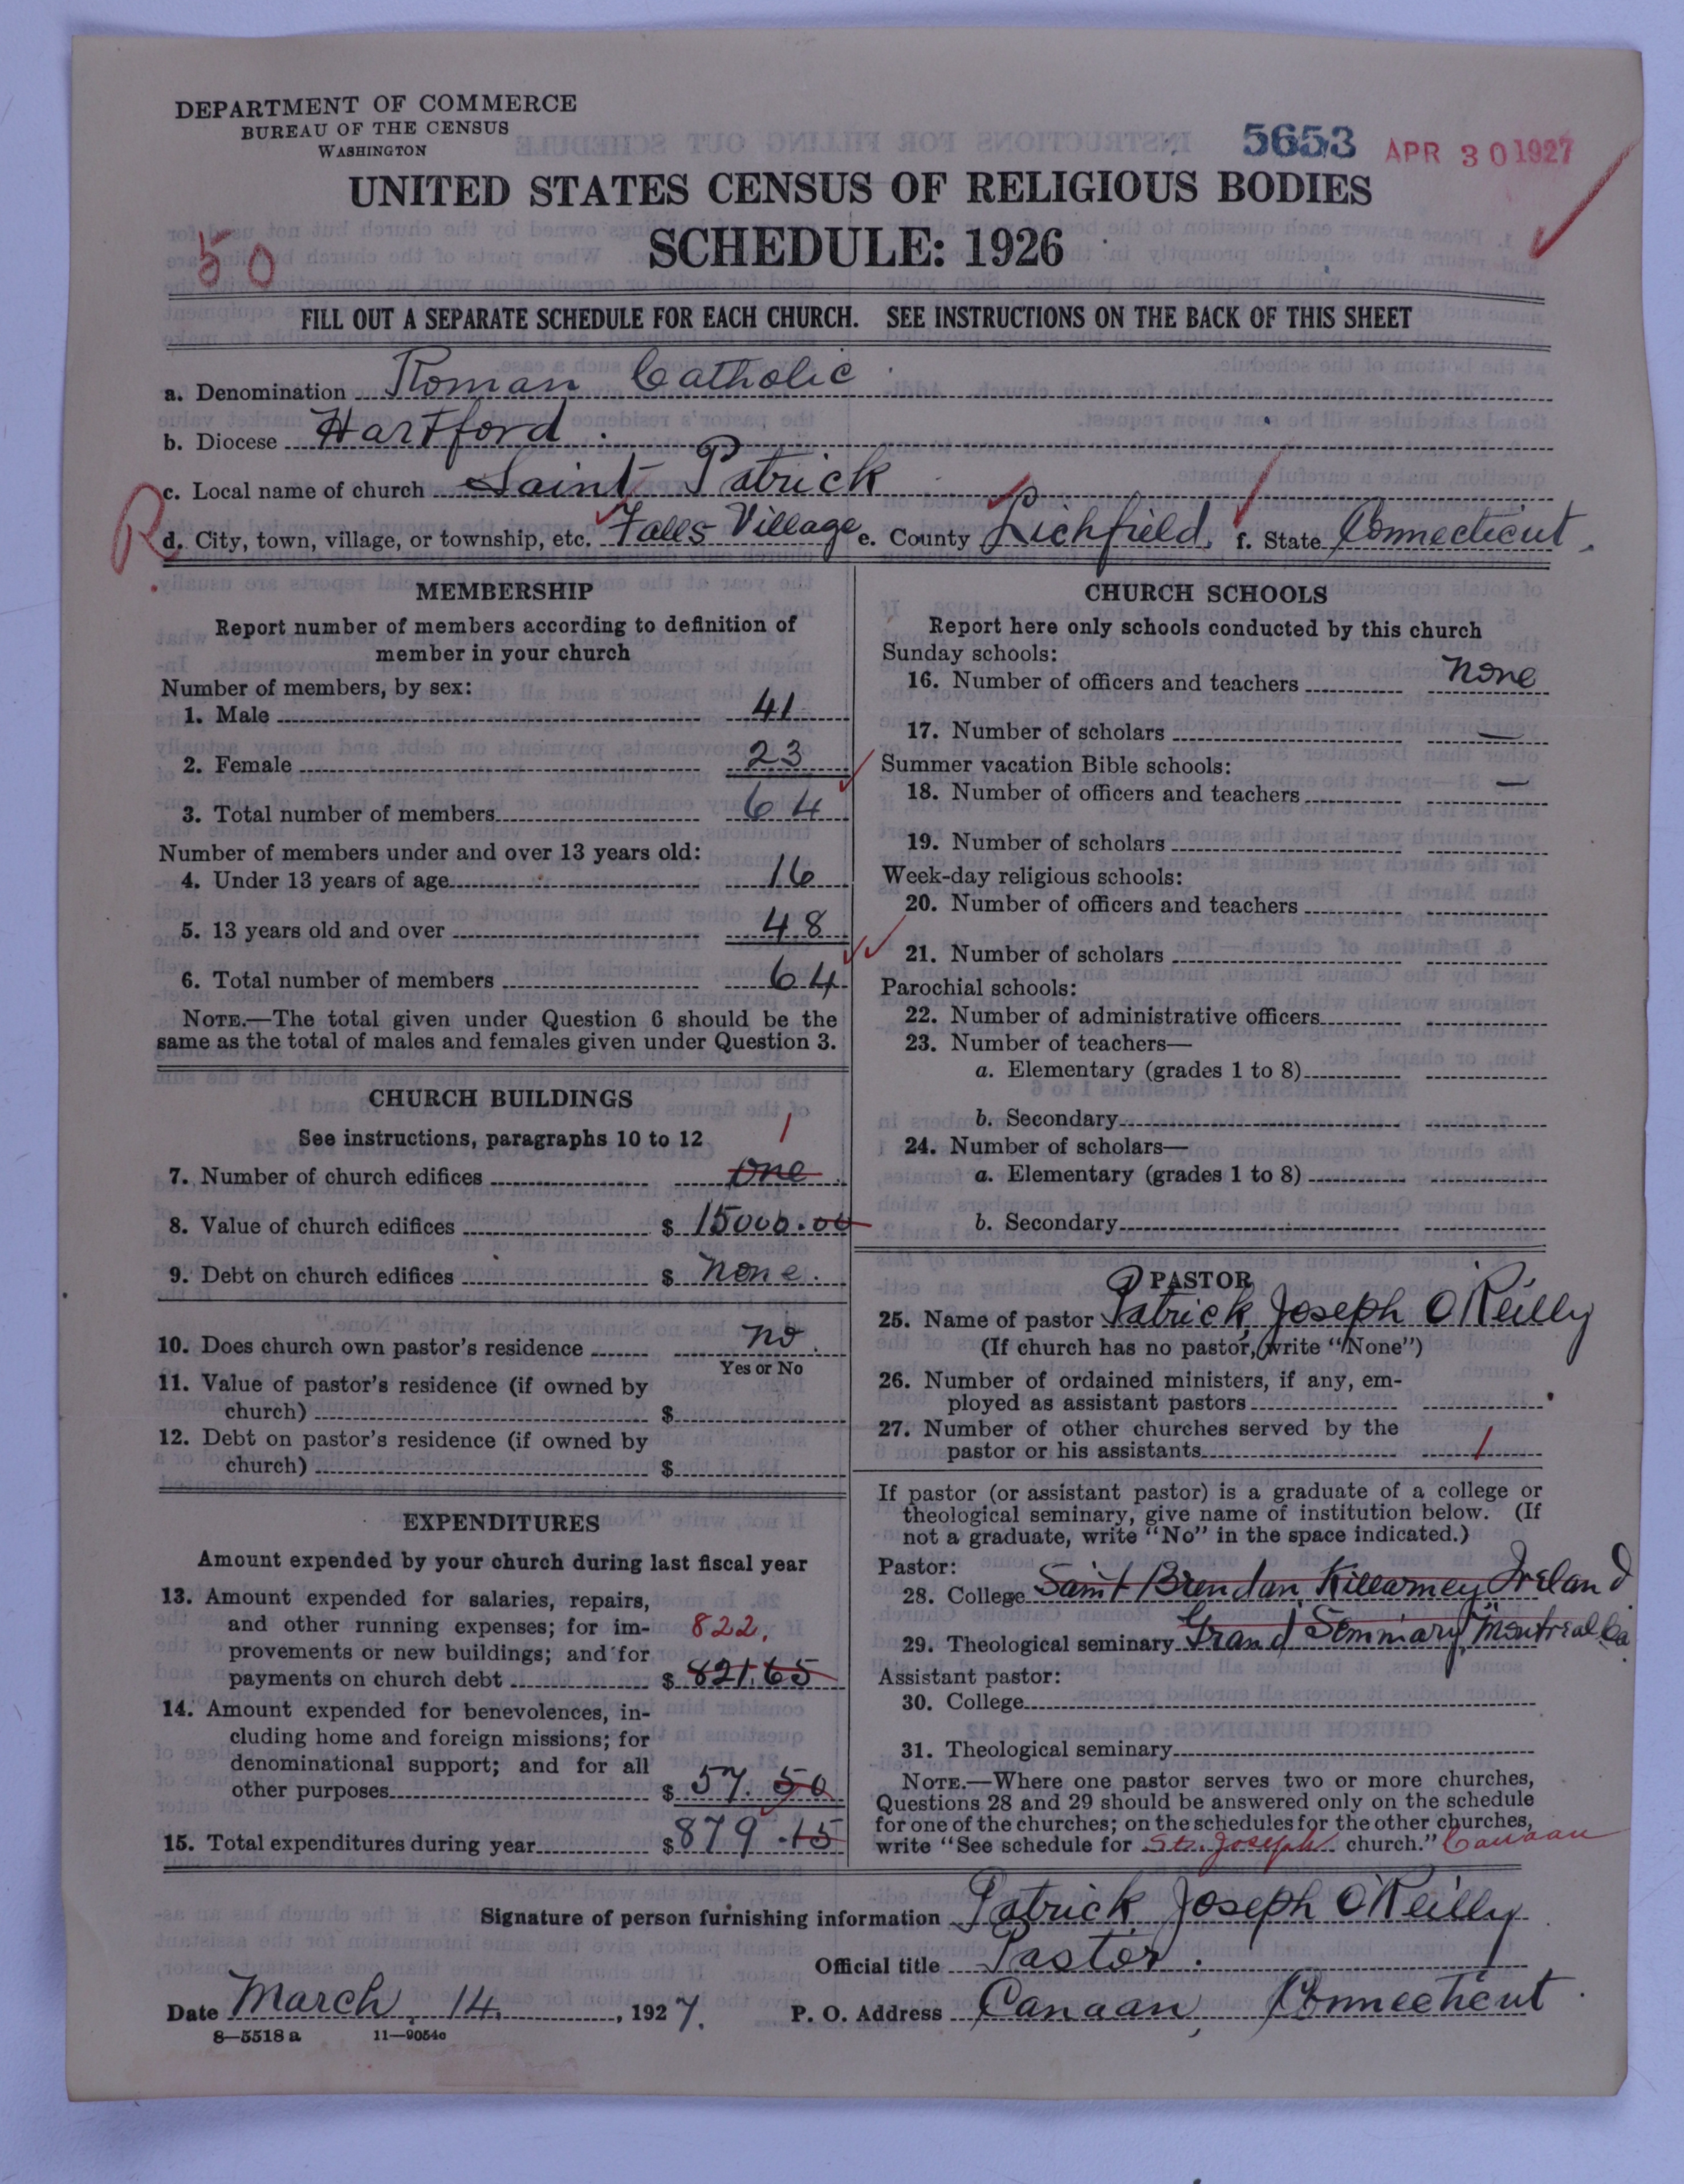 DEPARTMENT OF COMMERCE
BUREAU OF THE CENSUS
WASHINGTON
5653 APR 30 1927
UNITED STATES CENSUS OF RELIGIOUS BODIES
50
SCHEDULE: 1926
FILL OUT A SEPARATE SCHEDULE FOR EACH CHURCH. SEE INSTRUCTIONS ON THE BACK OF THIS SHEET
a. Denomination Roman Catholic
b. Diocese Hartford.
c. Local name of church Saint Patrick
R d. City, town, village, or township, etc. Falls Village e. County Lichfield, f. State Connecticut.
MEMBERSHIP
Report number of members according to definition of
member in your church
Number of members, by sex:
1. Male 41
2. Female 23
3. Total number of members 64
Number of members under and over 13 years old:
4. Under 13 years of age 16
5. 13 years old and over 48
6. Total number of members 64
NOTE.—The total given under Question 6 should be the
same as the total of males and females given under Question 3.
CHURCH BUILDINGS
See instructions, paragraphs 10 to 12
1
7. Number of church edifices one
8. Value of church edifices $ 15000.00
9. Debt on church edifices $ none.
10. Does church own pastor's residence no.
Yes or No
11. Value of pastor's residence (if owned by
church) $
12. Debt on pastor's residence (if owned by
church) $
EXPENDITURES
Amount expended by your church during last fiscal year
13. Amount expended for salaries, repairs,
and other running expenses; for im- 822.
provements or new buildings; and for
payments on church debt $ 821.65
14. Amount expended for benevolences, in-
cluding home and foreign missions; for
denominational support; and for all
other purposes $ 57.50
15. Total expenditures during year $ 879.15
CHURCH SCHOOLS
Report here only schools conducted by this church
Sunday schools:
16. Number of officers and teachers none
17. Number of scholars —
Summer vacation Bible schools:
18. Number of officers and teachers —
19. Number of scholars
Week-day religious schools:
20. Number of officers and teachers
21. Number of scholars
Parochial schools:
22. Number of administrative officers
23. Number of teachers—
a. Elementary (grades 1 to 8)
b. Secondary
24. Number of scholars—
a. Elementary (grades 1 to 8)
b. Secondary
PASTOR
25. Name of pastor Patrick Joseph O'Reilly
(If church has no pastor, write "None")
26. Number of ordained ministers, if any, em-
ployed as assistant pastors
27. Number of other churches served by the
pastor or his assistants 1
If pastor (or assistant pastor) is a graduate of a college or
theological seminary, give name of institution below. (If
not a graduate, write "No" in the space indicated.)
Pastor:
28. College Saint Brendan Killarney Ireland
29. Theological seminary Grand Seminary, Montreal Ca
Assistant pastor:
30. College
31. Theological seminary
NOTE.—Where one pastor serves two or more churches,
Questions 28 and 29 should be answered only on the schedule
for one of the churches; on the schedules for the other churches,
write "See schedule for St. Joseph church." Canaan
Signature of person furnishing information Patrick Joseph O'Reilly
Official title Pastor.
Date March 14, 1927. P. O. Address Canaan, Connecticut.
8—5518 a 11—9054c